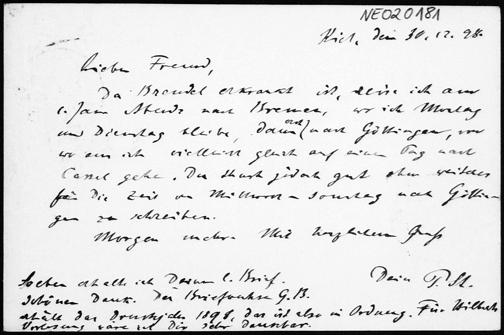 NEO20181
Kiel, den 30.12.98.
Lieber Freund,
Da Brendel erkrankt ist, reise ich am
1. Jan Abends nach Bremen, wo ich Montag
und Dienstag bleibe, dann erst nach Göttingen, von
wo ein ich vielleicht gleich auf einen Tag nach
Cassel gehe. Du thust jedoch gut ohne weiteres
für die Zeit von Mittwoch - Sonntag nach Göttin-
gen zu schreiben.
Morgen mehr. Mit herzlichem Gruß
Dein P. St.
Soeben erhalte ich Deinen l. Brief.
Schönen Dank. Der Briefwechsel G.B.
erhält das Druckjahr 1898, das ist also in Ordnung. Für Wilhelm
Vorlesung wäre ich Dir sehr dankbar.